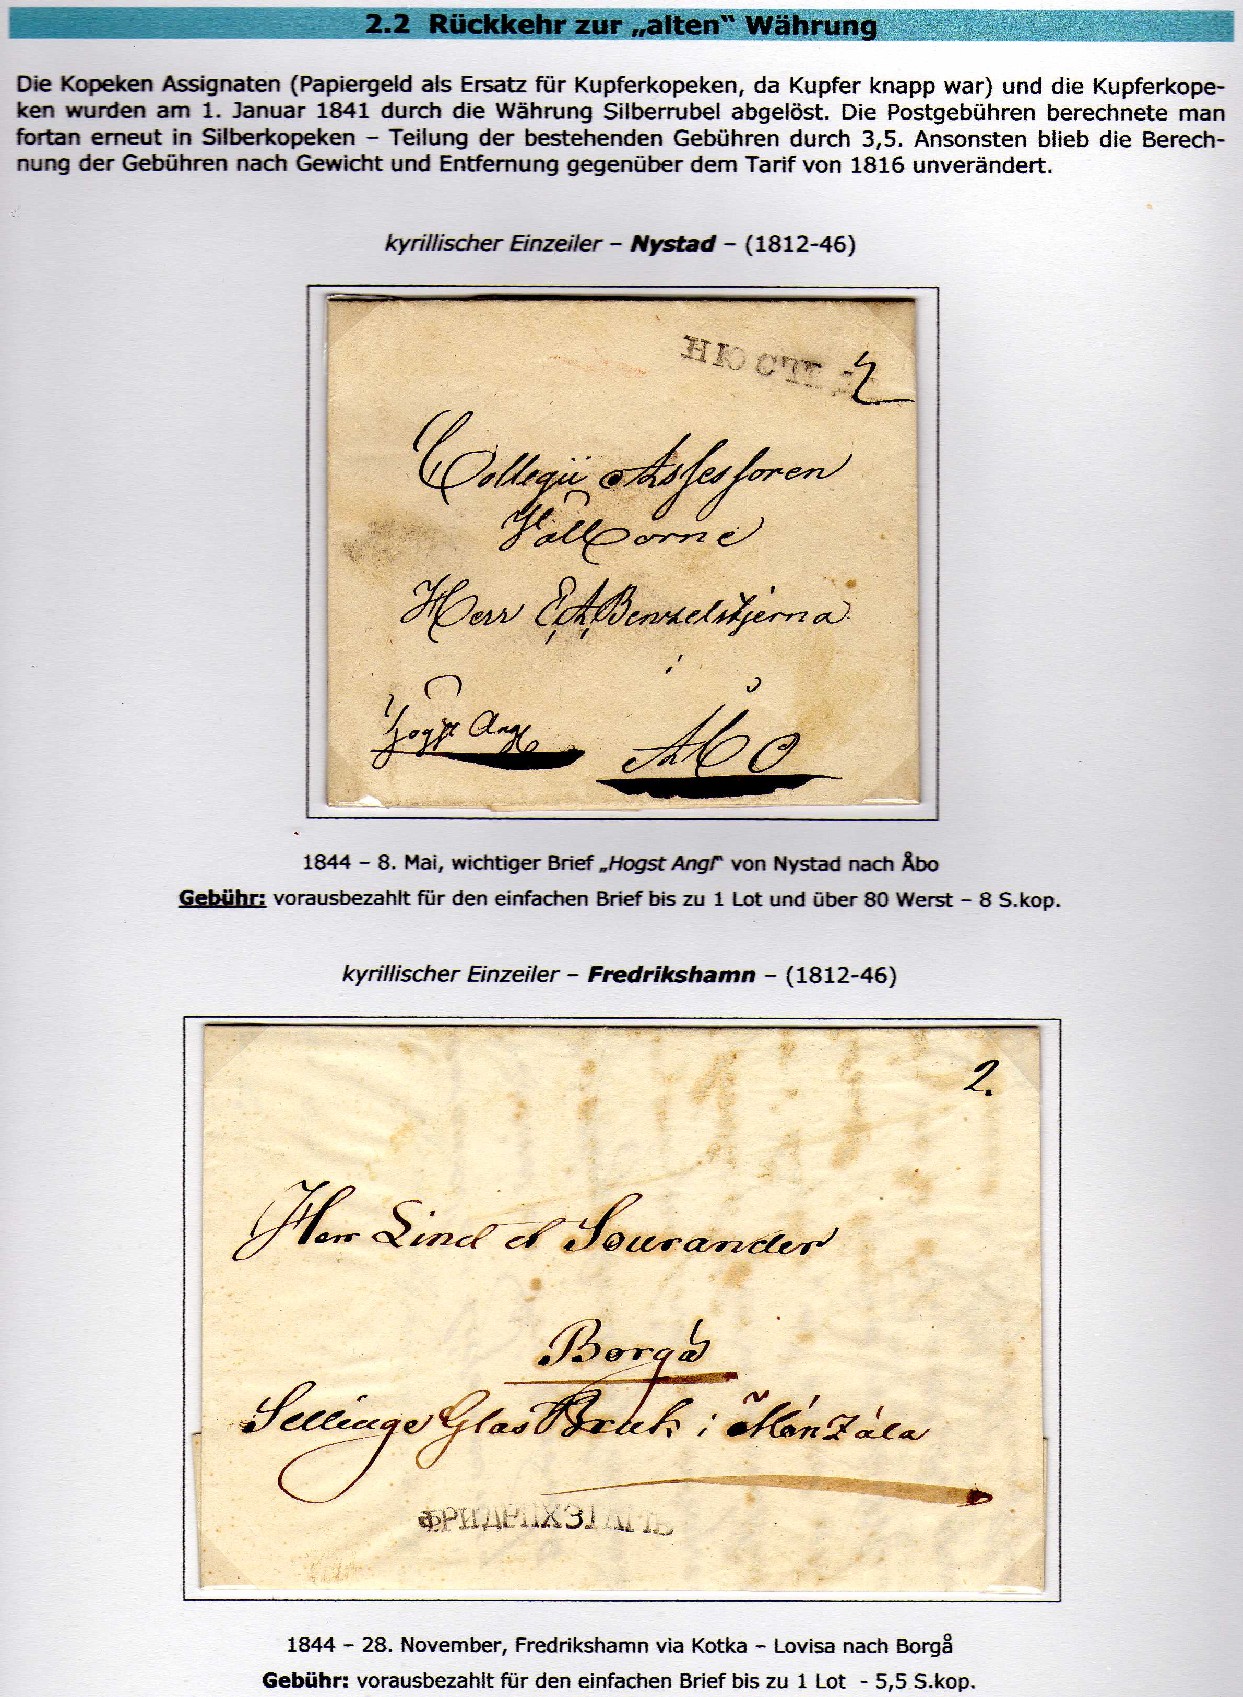 2.2 Rückkehr zur „alten“ Währung
Die Kopeken Assignaten (Papiergeld als Ersatz für Kupferkopeken, da Kupfer knapp war) und die Kupferkope-
ken wurden am 1. Januar 1841 durch die Währung Silberrubel abgelöst. Die Postgebühren berechnete man
fortan erneut in Silberkopeken – Teilung der bestehenden Gebühren durch 3,5. Ansonsten blieb die Berech-
nung der Gebühren nach Gewicht und Entfernung gegenüber dem Tarif von 1816 unverändert.
kyrillischer Einzeiler – Nystad – (1812-46)
Collegii Assessoren
Välborne
Herr E.A. Benzelstjerna
Högst Ang
Åbo
1844 – 8. Mai, wichtiger Brief „Hogst Angl“ von Nystad nach Åbo
Gebühr: vorausbezahlt für den einfachen Brief bis zu 1 Lot und über 80 Werst – 8 S.kop.
kyrillischer Einzeiler – Fredrikshamn – (1812-46)
2.
Herr Lind et Sourander
Borgå
Glas Bruk i
ФРИДРИХЗГАМЪ
1844 – 28. November, Fredrikshamn via Kotka – Lovisa nach Borgå
Gebühr: vorausbezahlt für den einfachen Brief bis zu 1 Lot - 5,5 S.kop.